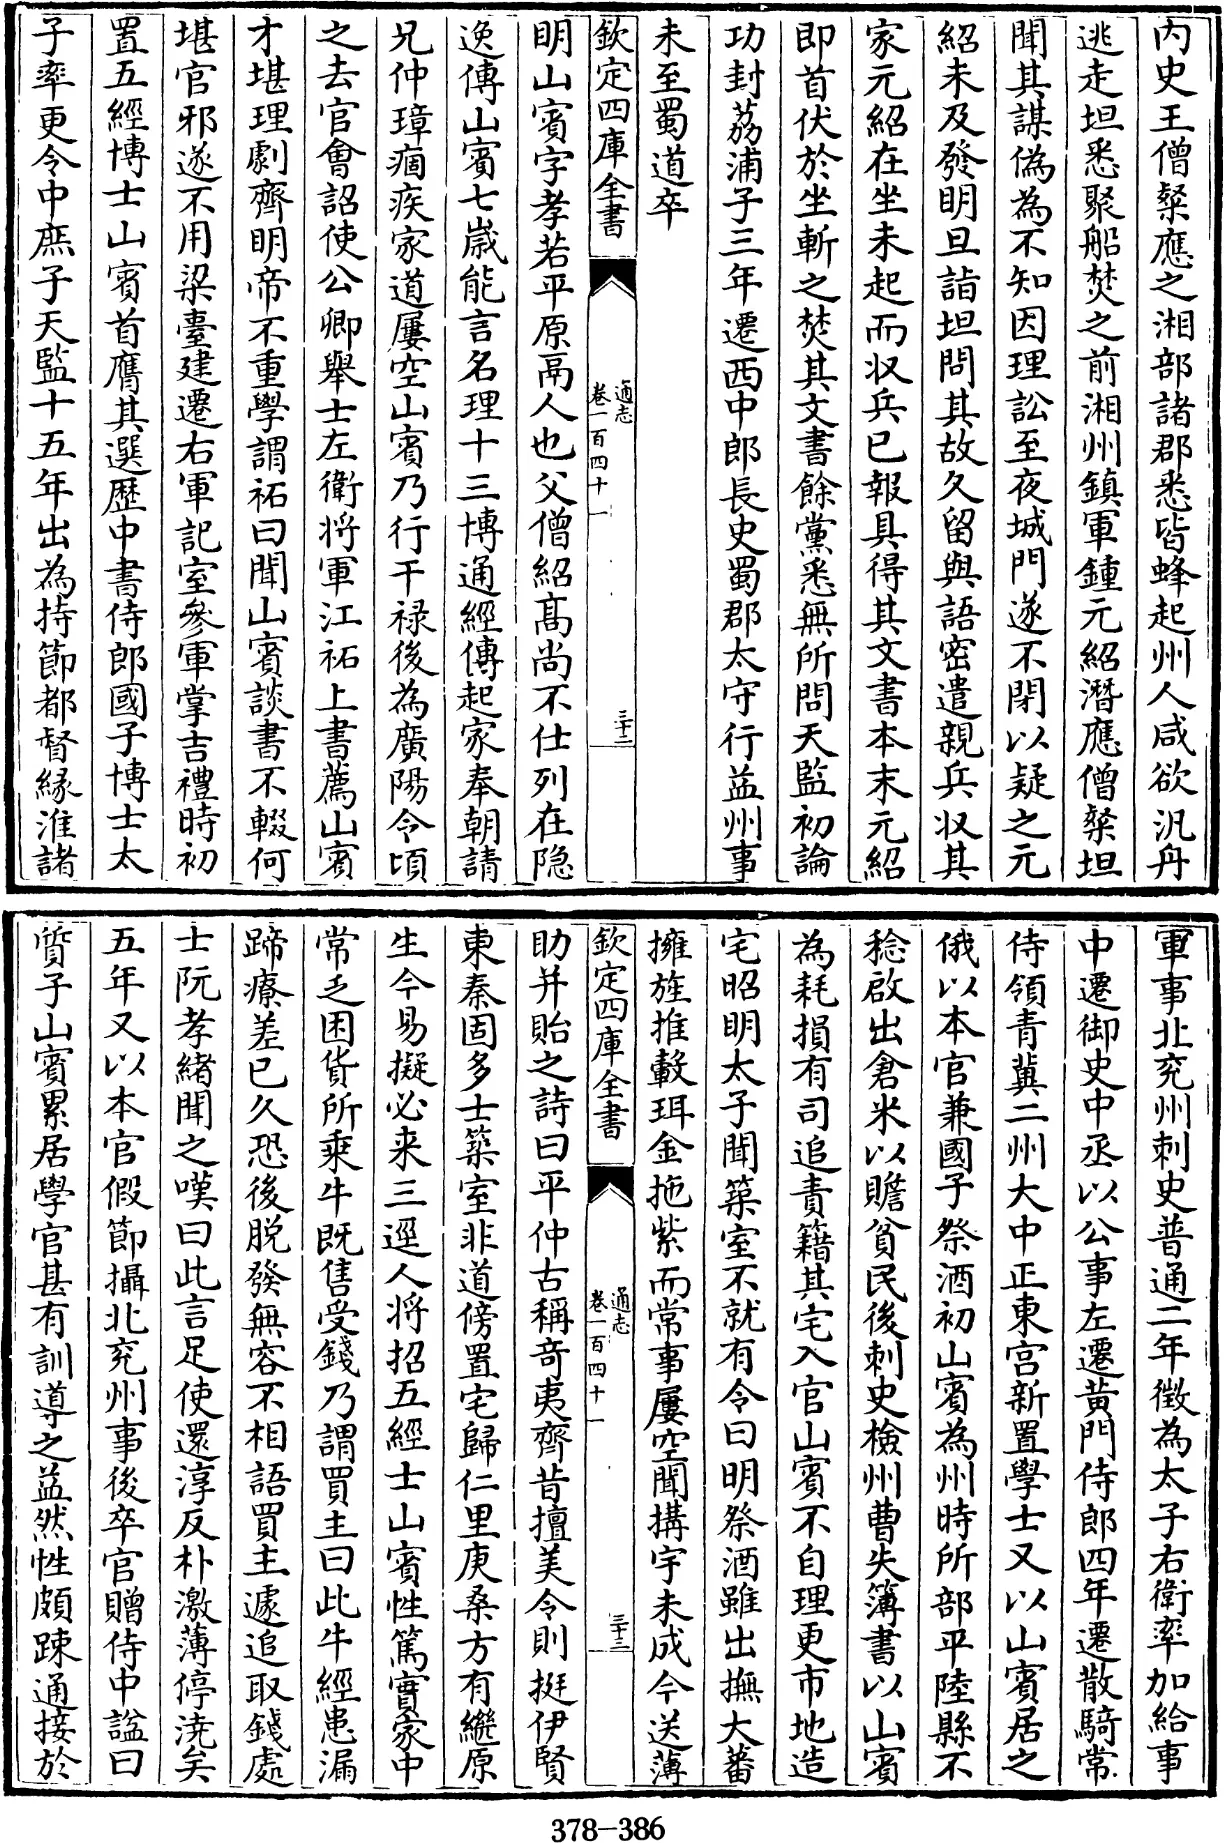 內史王僧粲應之湘部諸郡悉皆蜂起州人咸欲汎舟
逃走坦悉聚船焚之前湘州鎮軍鍾元紹潛應僧粲坦
聞其謀偽為不知因理訟至夜城門遂不閉以疑之元
紹未及發明旦詣坦問其故久留與語密遣親兵收其
家元紹在坐未起而收兵已報具得其文書本末元紹
即首伏於坐斬之焚其文書餘黨悉無所問天監初論
功封荔浦子三年遷西中郎長史蜀郡太守行益州事
未至蜀道卒
欽定四庫全書
通志
卷一百四十一
三十二
明山賓字孝若平原鬲人也父僧紹髙尚不仕列在隐
逸傳山賓七嵗能言名理十三博通經傳起家奉朝請
兄仲璋痼疾家道屢空山賓乃行干禄後為廣陽令頃
之去官會詔使公卿舉士左衛将軍江祏上書薦山賓
才堪理劇齊明帝不重學謂祏曰聞山賓談書不輟何
堪官邪遂不用梁臺建遷右軍記室參軍掌吉禮時初
置五經博士山賓首膺其選歴中書侍郎國子博士太
子率更令中庶子天監十五年出為持節都督縁淮諸
軍事北兖州刺史普通二年徴為太子右衛率加給事
中遷御史中丞以公事左遷黄門侍郎四年遷散騎常
侍領青冀二州大中正東宫新置學士又以山賓居之
俄以本官兼國子祭酒初山賓為州時所部平陸縣不
稔啟出倉米以贍貧民後刺史檢州曹失簿書以山賓
為耗損有司追責籍其宅入官山賓不自理更市地造
宅昭明太子聞築室不就有令曰明祭酒雖出撫大蕃
擁旄推轂珥金拖紫而常事屢空聞搆宇未成今送薄
欽定四庫全書
通志
卷一百四十一
三十三
助并貽之詩曰平仲古稱奇夷齊昔擅美令則挺伊賢
東秦固多士築室非道傍置宅歸仁里庚桑方有繼原
生今易擬必来三逕人将招五經士山賓性篤實家中
常乏困貨所乗牛既售受錢乃謂買主曰此牛經患漏
蹄療差已久恐後脱發無容不相語買主遽追取錢處
士阮孝緒聞之嘆曰此言足使還淳反朴激薄停澆矣
五年又以本官假節攝北兖州事後卒官贈侍中諡曰
質子山賓累居學官甚有訓導之益然性頗踈通接於
378-386